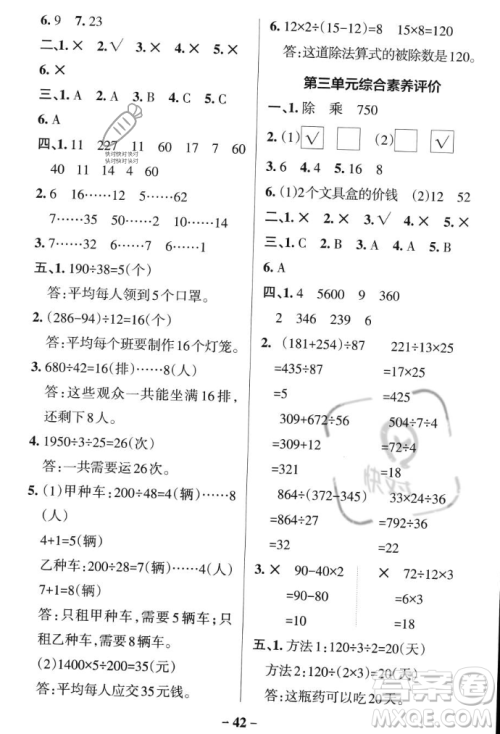 6. 9 7. 23
二、1. × 2. √ 3. × 4. × 5. ×
三、1. A 2. B 3. C 4. A 5. A
6. A
四、1. 11 227 11 17 7 60
40 11 14 4 60
2. 6 16 5 12
7……35 6……62
3. 7……12 5……15
五、1. 190÷38=5(个)
答:平均每人领到5个口罩。
2. (286-94)÷12=16(个)
答:平均每个班要制作16个灯笼。
3. 680÷42=16(排)……8(人)
答:这些观众一共能坐满16排,
还剩下8人。
4. 1950÷3÷25=26(次)
答:一共需要运26次。
5. (1)甲种车:200÷48=4(辆)……8
(人)
4+1=5(辆)
乙种车:200÷28=7(辆)……4(人)
7+1=8(辆)
答:只租甲种车,需要5辆;只
租乙种车,需要8辆。
(2)1400×5÷200=35(元)
答:平均每人应交35元钱。
6. 12×2÷(15-12) 15×8=120
答:这道除法算式的被除数是120。
第三单元综合素养评价
一、1. 除 乘 750
2. (1) √ (2) √
3. 6 4 4. 5 5. 16 8
6. (1)2个文具盒的价钱 (2)12 52
二、1. × 2. × 3. √ 4. × 5. ×
三、1. B 2. B 3. C 4. A 5. B
6. A
四、1. 4 5600 9 360
2 346 239 6
2. (181+254)÷87 221÷13×25
=435÷87 =17×25
=5 =425
309+672÷56 504÷7÷4
=309+12 =72÷4
=321 =18
864÷(372-345) 864÷(12×4)
=864÷27
=32 =18
3. × 90-40×2 × 72÷12×3
=90-80 =6×3
=10 =18
五、1. 方法1:120÷3÷2=20(天)
方法2:120÷(2×3)=20(天)
答:这瓶药可以吃20天。
- 42 -
答案圈
MXQE.COM